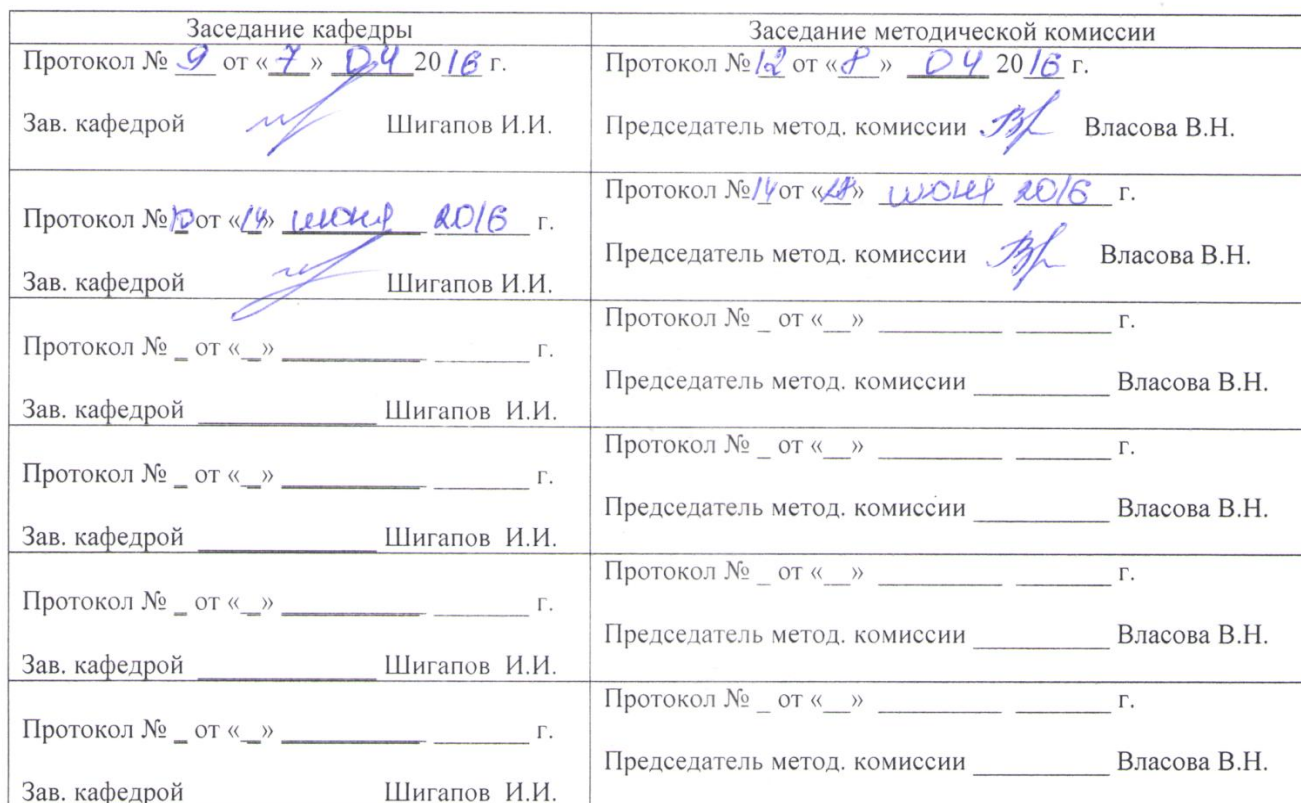 Заседание кафедры
Заседание методической комиссии
Протокол № 9 от «7» 04 2016 г.
Зав. кафедрой Шигапов И.И.
Протокол № 12 от «8» 04 2016 г.
Председатель метод. комиссии Власова В.Н.
Протокол № 10 от «14» июня 2016 г.
Зав. кафедрой Шигапов И.И.
Протокол № 14 от « » июня 2016 г.
Председатель метод. комиссии Власова В.Н.
Протокол № _ от «__» __________ _______ г.
Зав. кафедрой _____________ Шигапов И.И.
Протокол № _ от «__» _________ ______ г.
Председатель метод. комиссии __________ Власова В.Н.
Протокол № _ от «__» __________ _______ г.
Зав. кафедрой _____________ Шигапов И.И.
Протокол № _ от «__» _________ ______ г.
Председатель метод. комиссии __________ Власова В.Н.
Протокол № _ от «__» __________ _______ г.
Зав. кафедрой _____________ Шигапов И.И.
Протокол № _ от «__» _________ ______ г.
Председатель метод. комиссии __________ Власова В.Н.
Протокол № _ от «__» __________ _______ г.
Зав. кафедрой _____________ Шигапов И.И.
Протокол № _ от «__» _________ ______ г.
Председатель метод. комиссии __________ Власова В.Н.